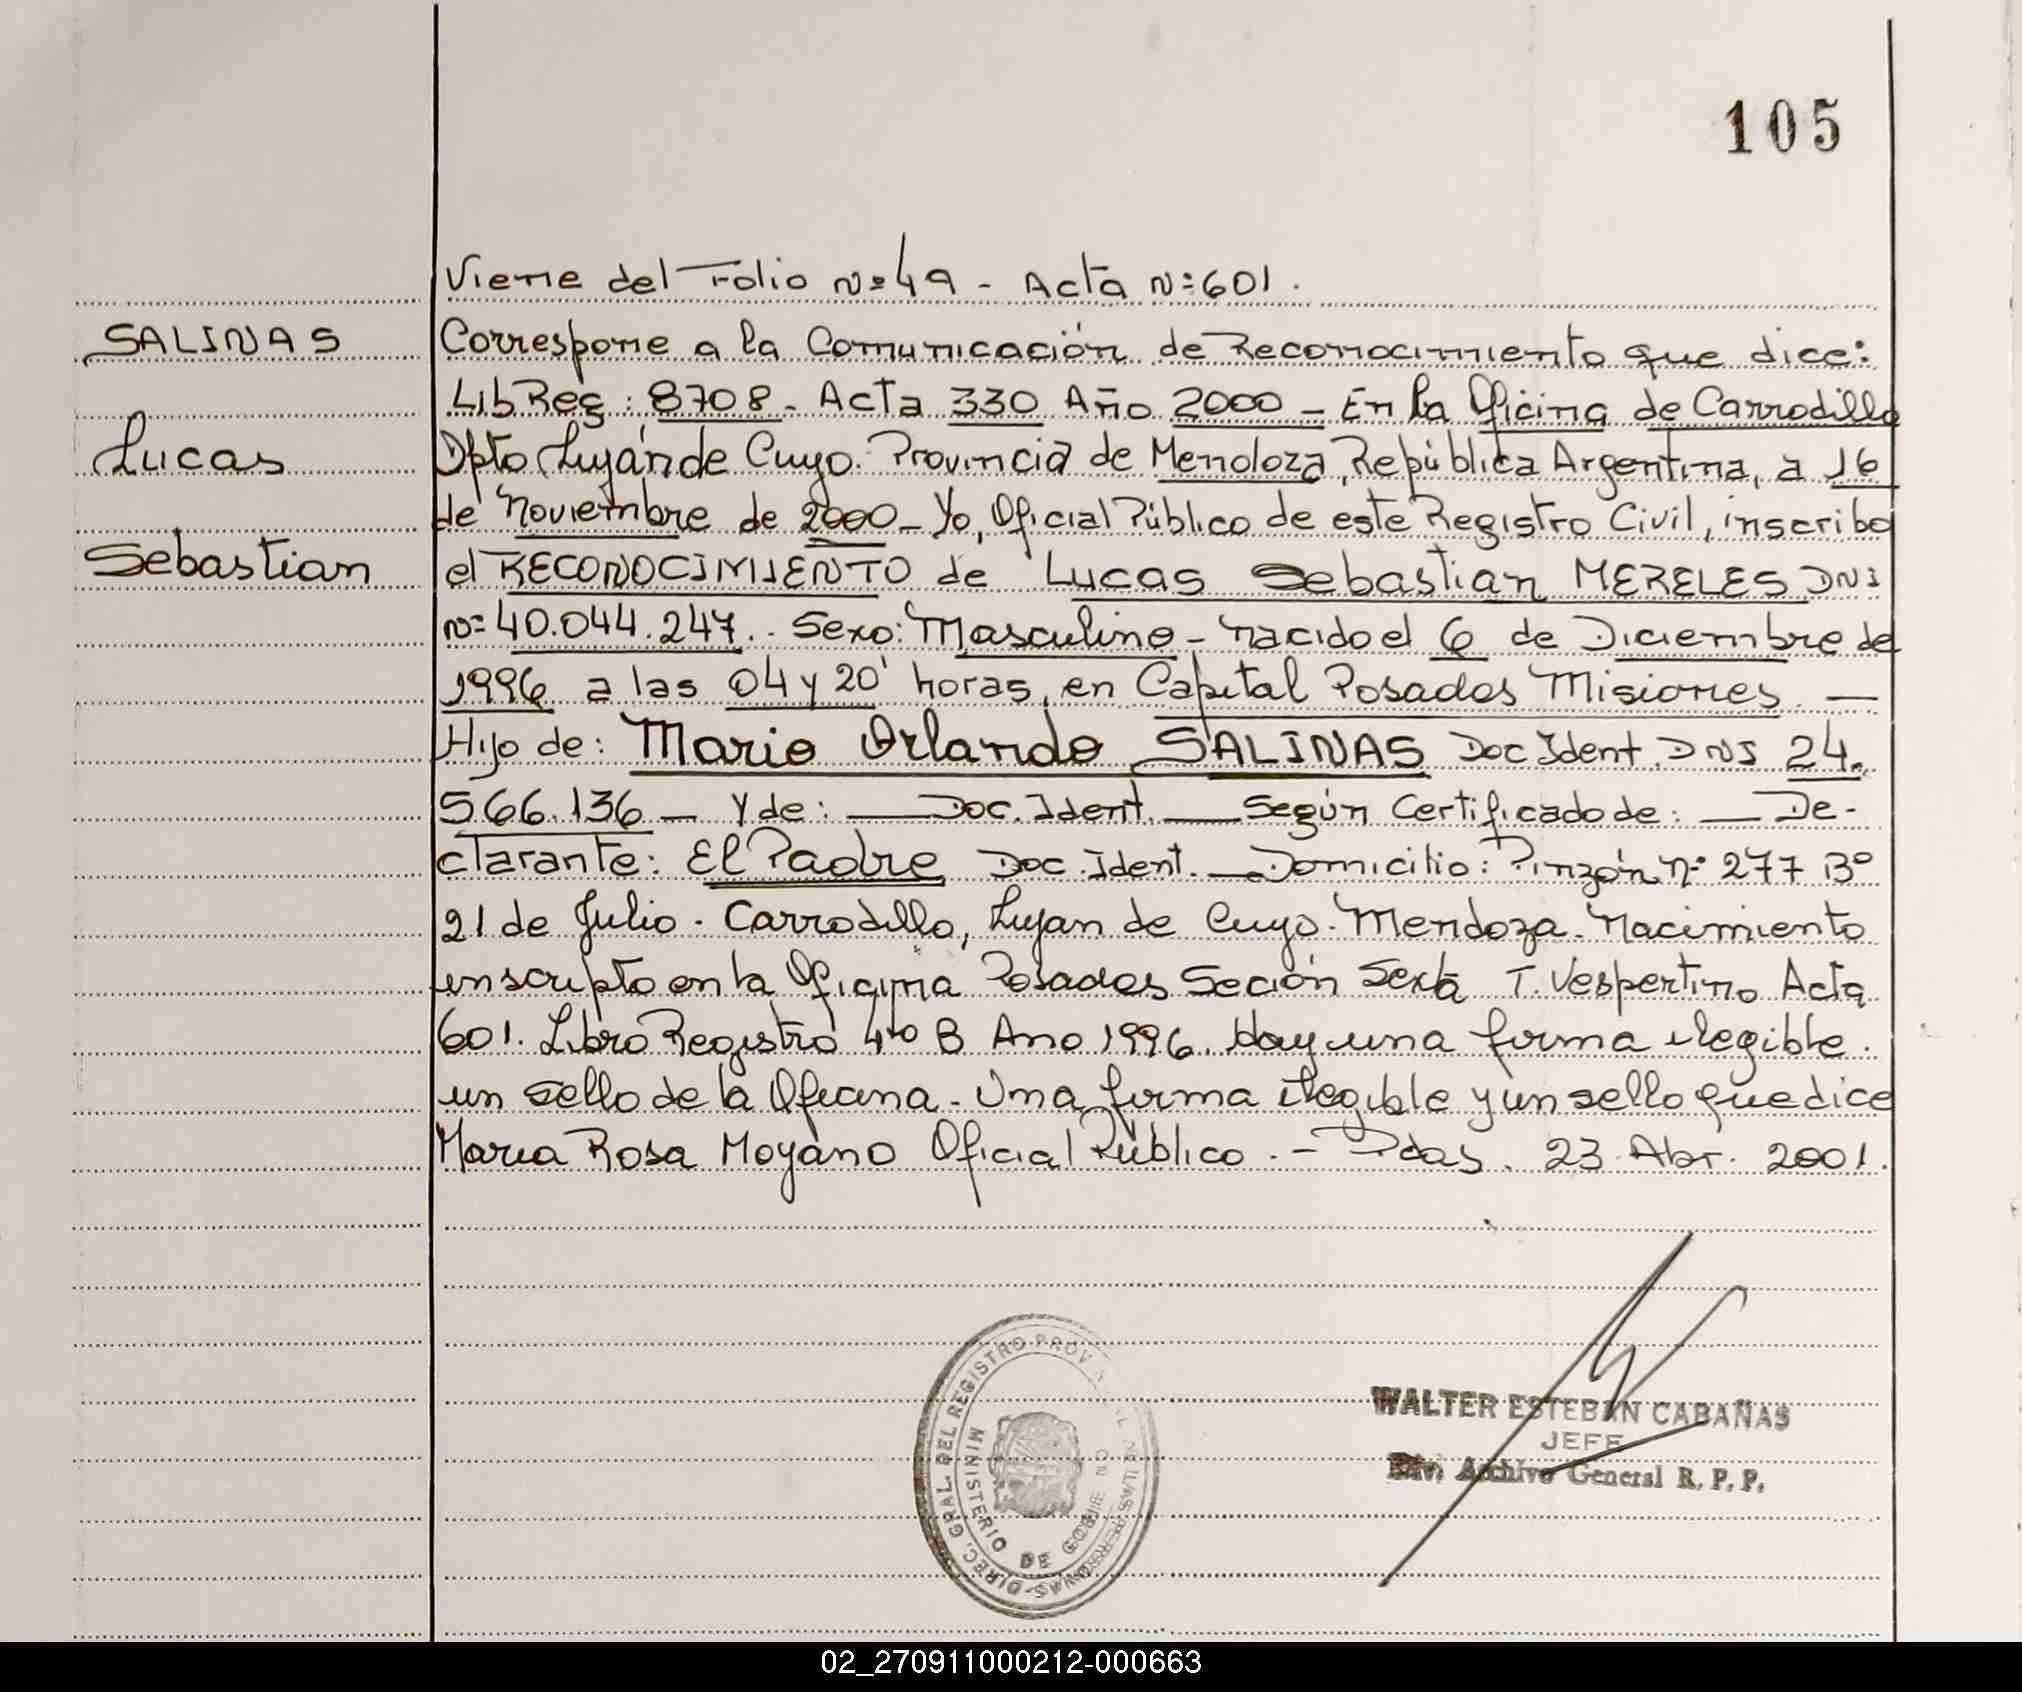 105
Viene del Folio Nº 49 - Acta Nº 601.
SALINAS
Correspone a la Comunicación de Reconocimiento que dice:
Lib Reg: 8708 - Acta 330 Año 2000 - En la Oficina de Carrodilla
Lucas
Dpto Luján de Cuyo. Provincia de Mendoza, República Argentina, a 16
de Noviembre de 2000 - Yo, Oficial Público de este Registro Civil, inscribo
Sebastian
el RECONOCIMIENTO de Lucas Sebastian MERELES DNI
Nº 40.044.247. Sexo: Masculino - nacido el 6 de Diciembre de
1996 a las 04 y 20' horas, en Capital Posadas Misiones. —
Hijo de: Mario Orlando SALINAS Doc Ident. DNI 24.
566.136 — Y de: — Doc. Ident. — Según Certificado de: — De-
clarante: El Padre Doc. Ident. — Domicilio: Pinzón Nº 277 Bº
21 de Julio. Carrodilla, Lujan de Cuyo. Mendoza. Nacimiento
inscripto en la Oficina Posadas Seción Sexta T. Vespertino Acta
601. Libro Registro 4to B Ano 1996. Hay una firma ilegible.
un sello de la Oficina. Una firma ilegible y un sello que dice
Maria Rosa Moyano Oficial Público. - Pdas. 23 Abr. 2001.
DIREC. GRAL. DEL REGISTRO PROV
MINISTERIO DE
WALTER ESTEBAN CABAÑAS
JEFE
Div. Archivo General R. P. P.
02_270911000212-000663